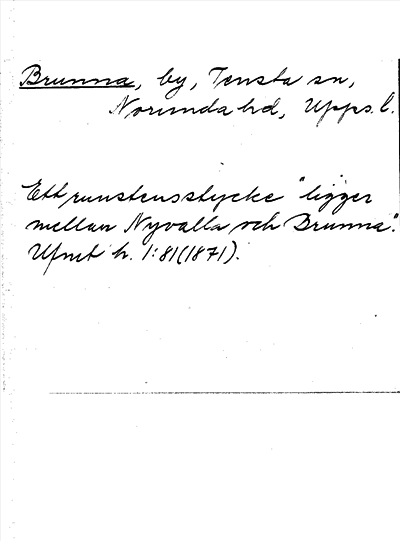 Brunna, by, Tensta sn,
Norunda hd, Upps. l.
Ett runstensstycke "ligger
mellan Nyvalla och Brunna".
Ufmt h. 1:81 (1871).